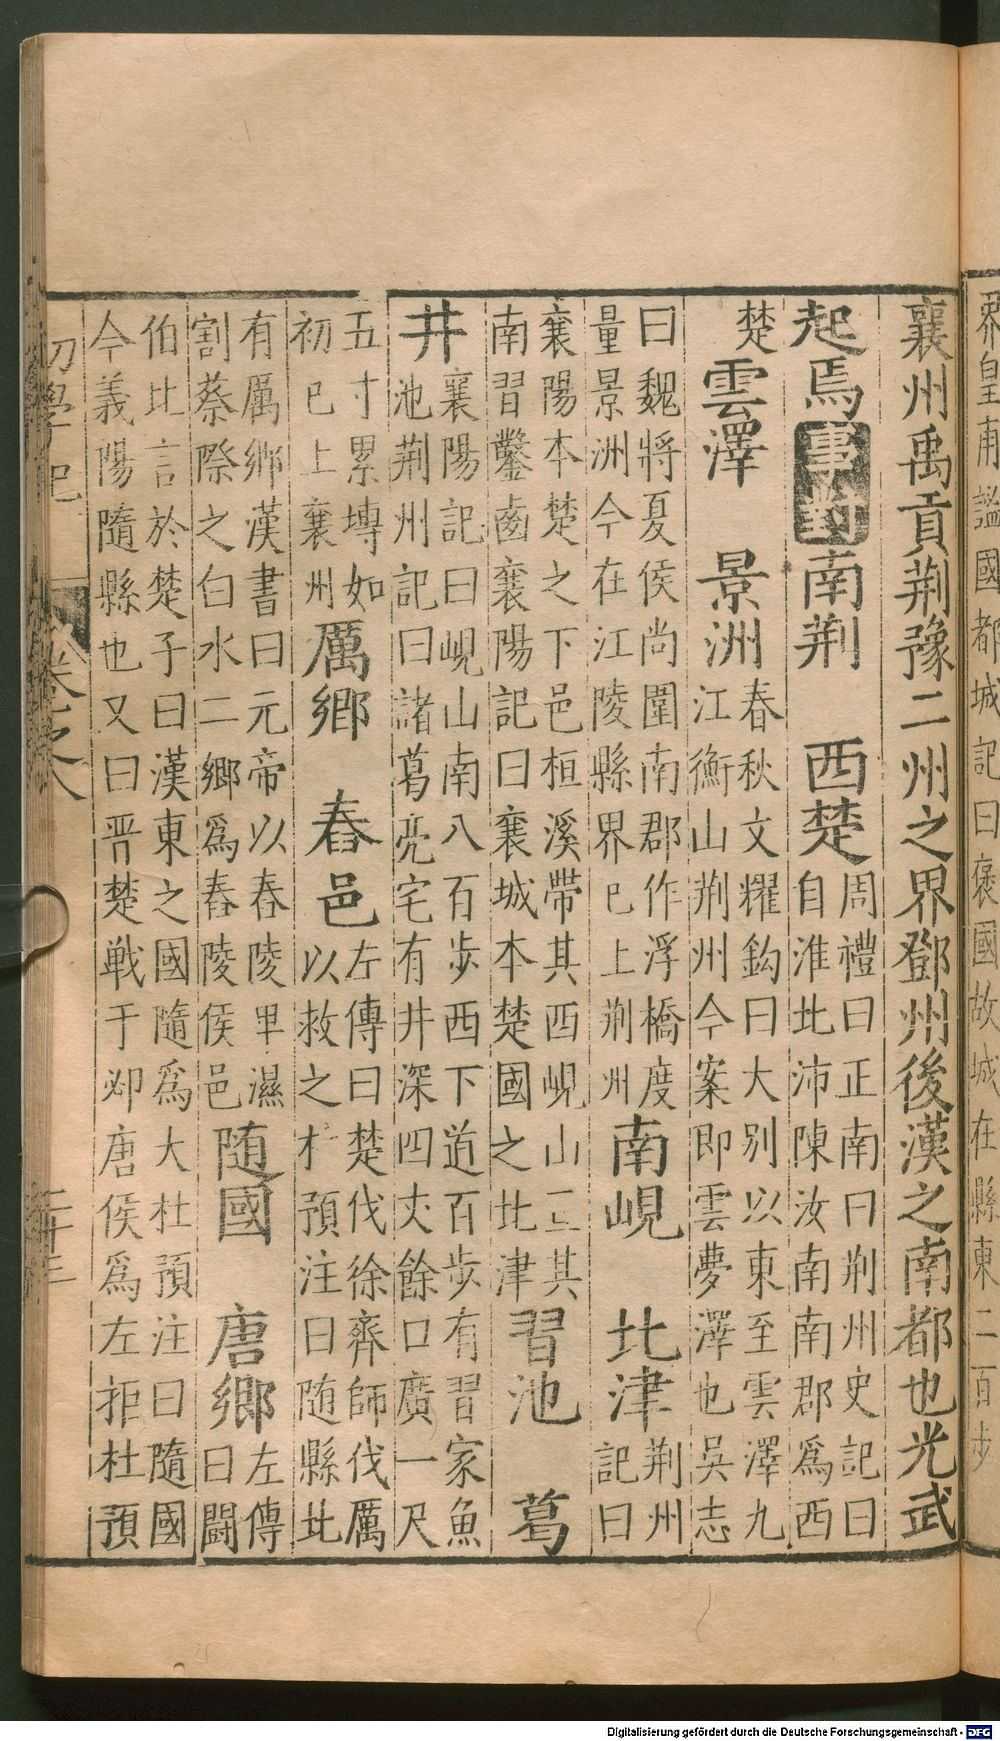 界皇甫謐國都城記曰褒國故城在縣東二百步
襄州禹貢荆豫二州之界鄧州後漢之南都也光武
起焉事對南荆　西楚周禮曰正南曰荆州史記曰
自淮北沛陳汝南南郡爲西
楚雲澤　景洲春秋文耀鈎曰大别以東至雲澤九
江衡山荆州今案即雲夢澤也吳志
曰魏將夏侯尚圍南郡作浮橋度
量景洲今在江陵縣界巳上荆州南峴　北津荆州
記曰
襄陽本楚之下邑桓溪帶其西峴山亘其
南習鑿齒襄陽記曰襄城本楚國之北津習池　葛
井襄陽記曰峴山南八百步西下道百步有習家魚
池荆州記曰諸葛亮宅有井深四丈餘口廣一尺
五寸累塼如
初巳上襄州厲鄉　舂邑左傳曰楚伐徐齊師伐厲
以救之杜預注曰随縣北
有厲鄉漢書曰元帝以舂陵卑濕
割蔡際之白水二鄉爲舂陵侯邑随國　唐鄉左傳
曰鬭
伯比言於楚子曰漢東之國隨爲大杜預注曰隨國
今義陽隨縣也又曰晋楚戰于邲唐侯爲左拒杜預
初學記　卷之八　二十三
Digitalisierung gefördert durch die Deutsche Forschungsgemeinschaft - DFG